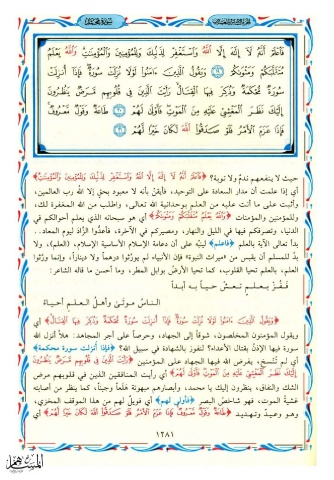 سورة محمد
فَاعْلَمْ أَنَّهُ لَا إِلَهَ إِلَّا اللَّهُ وَاسْتَغْفِرْ لِذَنبِكَ وَلِلْمُؤْمِنِينَ وَالْمُؤْمِنَاتِ وَاللَّهُ يَعْلَمُ
مُتَقَلَّبَكُمْ وَمَثْوَاكُمْ ۝١٩ وَيَقُولُ الَّذِينَ آمَنُوا لَوْلَا نُزِّلَتْ سُورَةٌ فَإِذَا أُنزِلَتْ
سُورَةٌ مُّحْكَمَةٌ وَذُكِرَ فِيهَا الْقِتَالُ رَأَيْتَ الَّذِينَ فِي قُلُوبِهِم مَّرَضٌ يَنظُرُونَ
إِلَيْكَ نَظَرَ الْمَغْشِيِّ عَلَيْهِ مِنَ الْمَوْتِ فَأَوْلَى لَهُمْ ۝٢٠ طَاعَةٌ وَقَوْلٌ مَّعْرُوفٌ
فَإِذَا عَزَمَ الْأَمْرُ فَلَوْ صَدَقُوا اللَّهَ لَكَانَ خَيْرًا لَّهُمْ ۝٢١
حيث لا ينفعهم ندمٌ ولا توبة؟ ﴿فَاعْلَمْ أَنَّهُ لَا إِلَهَ إِلَّا اللَّهُ وَاسْتَغْفِرْ لِذَنبِكَ وَلِلْمُؤْمِنِينَ وَالْمُؤْمِنَاتِ﴾
أي إذا علمت أن مدار السعادة على التوحيد، فأيقنْ بأنه لا معبود بحق إلا الله رب العالمين،
واثبت على ما أنت عليه من العلم بوحدانية الله تعالى، واطلب من الله المغفرة لك،
وللمؤمنين والمؤمنات ﴿وَاللَّهُ يَعْلَمُ مُتَقَلَّبَكُمْ وَمَثْوَاكُمْ﴾ أي هو سبحانه الذي يعلم أحوالكم في
الدنيا، وتصرفكم فيها في الليل والنهار، ومصيركم في الآخرة، فأعدُّوا الزاد ليوم المعاد..
بدأ تعالى الآية بالعلم ﴿فاعلم﴾ لينبّه على أن دعامة الإسلام الأساسية الإسلام، (العلم)، ولا
بدَّ للمسلم أن يقبس من (ميراث النبوة) فإن الأنبياء لم يورّثوا درهماً ولا ديناراً، وإنما ورّثوا
العلم، بالعلم تحيا القلوب، كما تحيا الأرض بوابل المطر، وما أحسن ما قاله الشاعر:
فَفُزْ بعِلمٍ تَعِشْ حياً به أبداً
الناسُ موتَى وأهلُ العلمِ أحياءُ
﴿وَيَقُولُ الَّذِينَ آمَنُوا لَوْلَا نُزِّلَتْ سُورَةٌ فَإِذَا أُنزِلَتْ سُورَةٌ مُّحْكَمَةٌ وَذُكِرَ فِيهَا الْقِتَالُ﴾ أي
ويقول المؤمنون المخلصون، شوقاً إلى الجهاد، وحرصاً على أجر المجاهد: هلاّ أنزل الله
سورة فيها الإذنُ بقتال الأعداء؟ لنفوز بالشهادة في سبيل الله؟ ﴿فإذا أنزلت سورة محكمة﴾
أي لم تُنْسخ، يفرض الله فيها الجهاد على المؤمنين ﴿رَأَيْتَ الَّذِينَ فِي قُلُوبِهِم مَّرَضٌ يَنظُرُونَ
إِلَيْكَ نَظَرَ الْمَغْشِيِّ عَلَيْهِ مِنَ الْمَوْتِ فَأَوْلَى لَهُمْ﴾ أي رأيت المنافقين الذين في قلوبهم مرض
الشك والنفاق، ينظرون إليك يا محمد، وأبصارهم مبهوتة هَلَعاً وجبناً، كما ينظر من أصابته
غشية الموت، فهو شاخص البصر ﴿فأولى لهم﴾ أي فويلٌ لهم من هذا الموقف المخزي،
وهو وعيدٌ وتهديد ﴿طَاعَةٌ وَقَوْلٌ مَّعْرُوفٌ فَإِذَا عَزَمَ الْأَمْرُ فَلَوْ صَدَقُوا اللَّهَ لَكَانَ خَيْرًا لَّهُمْ﴾ أي
١٢٨١